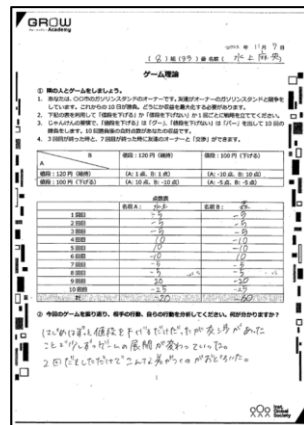 GROW
Academy
11月7
(8)組(99)番 名前(水上
ゲーム理論
① 隣の人とゲームをしましょう。
1. あなたは、〇〇市のガソリンスタンドのオーナーです。友達がオーナーのガソリンスタンドと競争を
しています。これからの10日が勝負。どうにか収益を最大化する必要があります。
2. 下記の表を利用して「値段を下げる」か「値段を下げない」か1回ごとに戦略を立ててください。
3. じゃんけんの要領で、「値段を下げる」は「グー」、「値段を下げない」は「パー」を出して10回の
勝負をします。10回勝負後の合計点数があなたの収益です。
4. 3回目が終った時と、7回目が終った時に友達のオーナーと「交渉」ができます。
B 値段:120円(維持) 値段:100円(下げる)
A
値段:120円(維持) (A: 1点, B: 1点) (A: -10点, B: 10点)
値段:100円(下げる) (A: 10点, B: -10点) (A: -5点, B: -5点)
点数表
名前A: 名前B:
1回目 -5 -5
2回目 -5 -5
3回目 -5 -5
4回目 10 -10
5回目 10 -10
6回目 -10 10
7回目
8回目 -5
9回目 20 -20
10回目 -25
計 -20
② 今回のゲームを振り返り、相手の行動、自らの行動を分析してください。何が分かりますか?
はじめはずっと値段を下げるだけだったが交渉があった
ことで少しずつゲームの展開が変わっていった。
2回だましただけでこんなに差がつくのがおどろいた。
Inst.
Global
Society